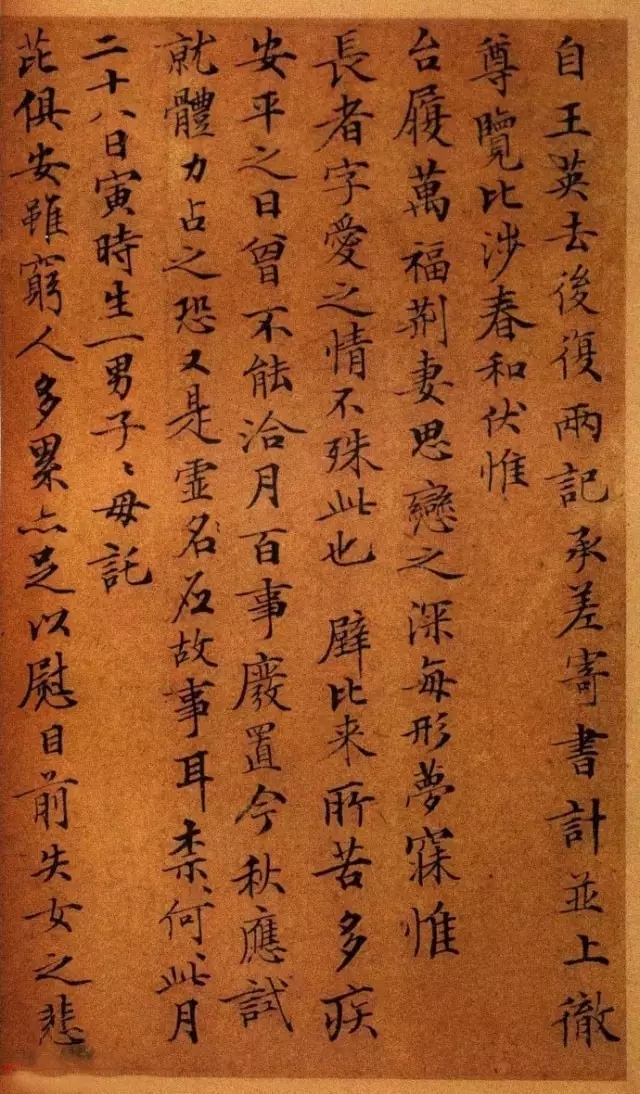 自王英去後復兩記承差寄書計並上徹
尊覽比涉春和伏惟
台履萬福荆妻思戀之深每形夢寐惟
長者字愛之情不殊此也 辟比来所苦多疾
安平之日曾不能洽月百事廢置今秋應試
就體力占之恐又是虚名应故事耳柰何〻此月
二十八日寅時生一男子〻母託
芘俱安雖窮人多累亦足以慰目前失女之悲